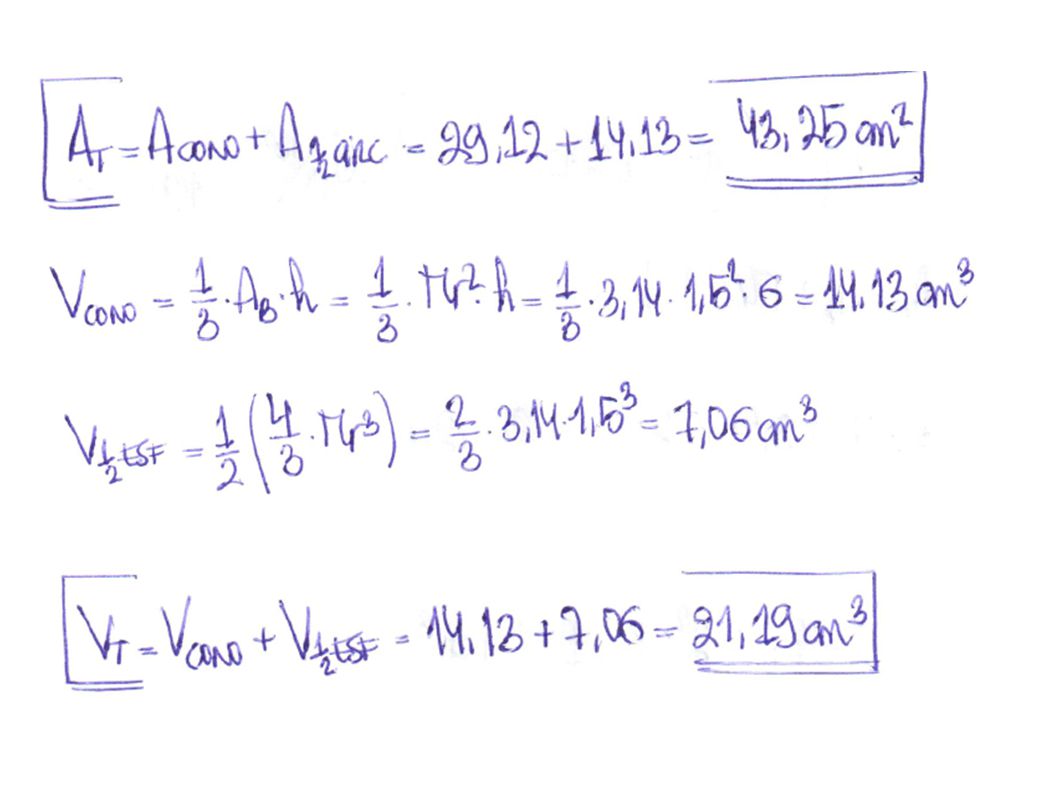 A_T = A_CONO + A_½ CIRC = 29,12 + 14,13 = 43,25 cm²
V_CONO = 1/3 · A_B · h = 1/3 · πr² · h = 1/3 · 3,14 · 1,5² · 6 = 14.13 cm³
V_½ ESF = 1/2 (4/3 · πr³) = 2/3 · 3,14 · 1,5³ = 7,06 cm³
V_T = V_CONO + V_½ ESF = 14.13 + 7,06 = 21,19 cm³